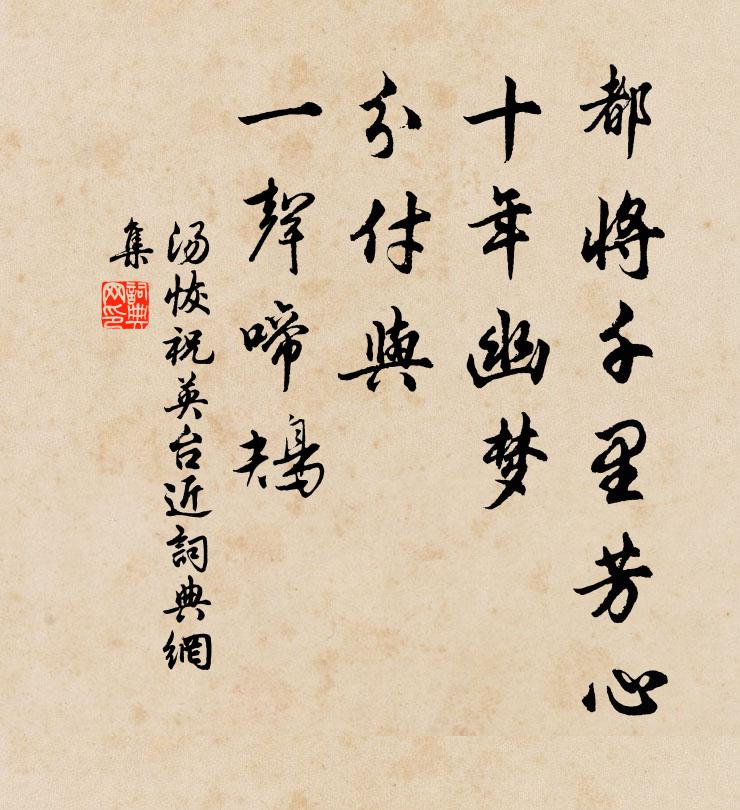 都将千里芳心
十年幽梦
分付與
一聲啼鴂
汤恢祝英台近詞典網
集
詞典
网印